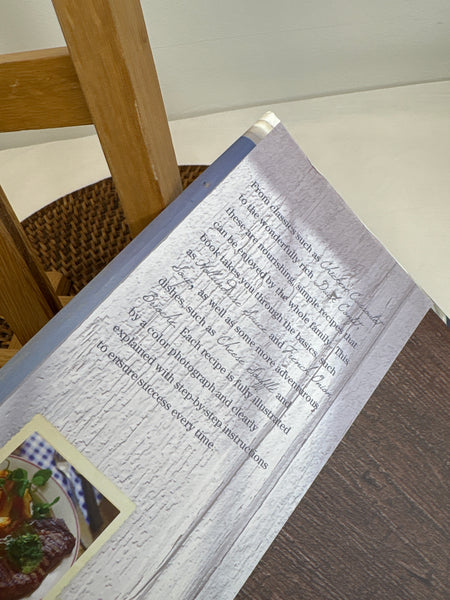 From classics such as Chicken
to the wonderfully rich Beef
these are nourishing, simple recipes that
can be enjoyed by the whole family. This
book takes you through the basics, such
as Hollandaise Sauce and French Onion
Soup, as well as some more adventurous
dishes, such as Cheese Soufflé and
Brioche. Each recipe is fully illustrated
by a color photograph and clearly
explained with step-by-step instructions
to ensure success every time.